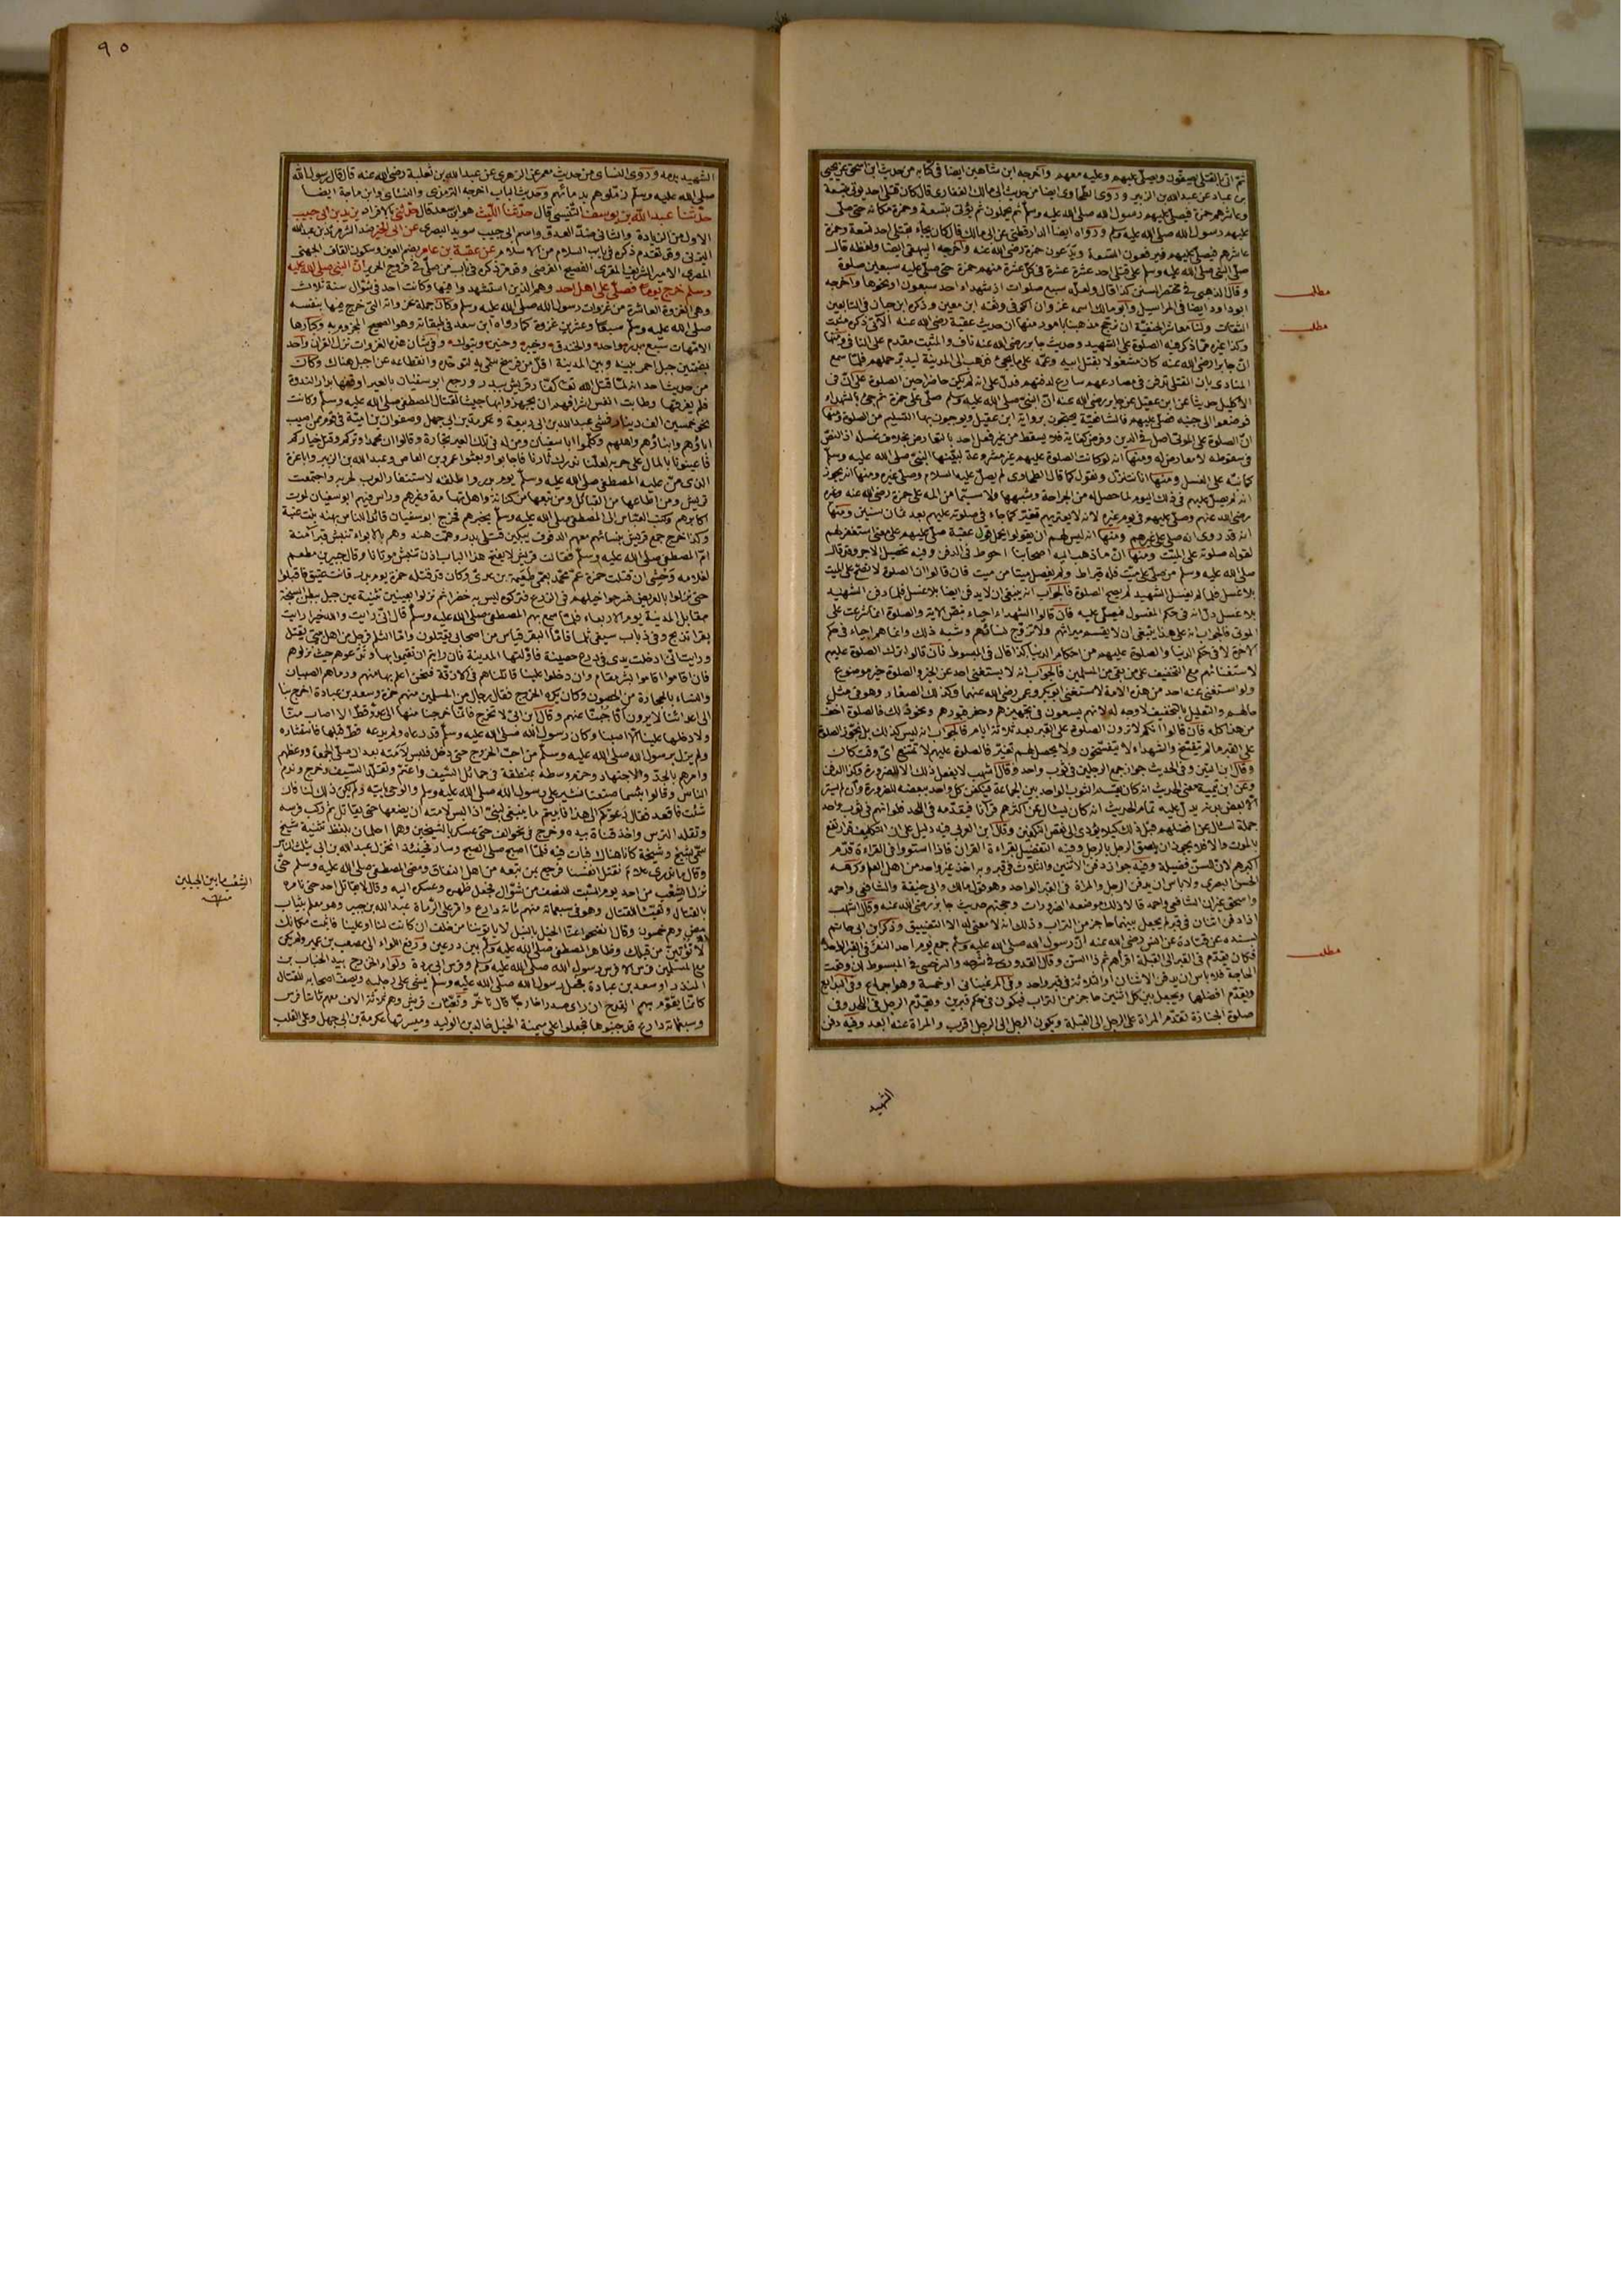 ثم اتى بالقتلى يصفون ويصلى عليهم وعليه معهم وأخرجه ابن شاهين ايضا في كتابه من حديث ابن اسحق عن يحيى
بن عباد عن عبد الله بن الزبير وروى الطحاوى ايضا من حديث ابى مالك الغفارى قال كان قتلى احد يؤتى بتسعة
وعاشرهم حمزة فيصلى عليهم رسول الله صلى الله عليه وسلم ثم يحملون ثم يؤتى بتسعة وحمزة مكانه حتى صلى
عليهم رسول الله صلى الله عليه وسلم ورواه ايضا الدارقطنى عن ابى مالك قال كان يجاء بقتلى احد تسعة وحمزة
عاشرهم فيصلى عليهم فيرفعون التسعة ويدعون حمزة رضى الله عنه وأخرجه البيهقى ايضا ولفظه قال
صلى النبى صلى الله عليه وسلم على قتلى احد عشرة عشرة في كل عشرة منهم حمزة حتى صلى عليه سبعين صلوة
وقال الذهبى في مختصر السنن كذا قال ولعله سبع صلوات اذ شهداء احد سبعون او نحوها وأخرجه
ابو داود ايضا في المراسيل وأبو مالك اسمه غزوان الكوفى وثقه ابن معين وذكره ابن حبان في التابعين
الثقات ولنا معاشر الحنفية ان نرجح مذهبنا بامور منها ان حديث عقبة رضى الله عنه الآتى ذكره مثبت
وكذا غيره مما ذكر فيه الصلوة على الشهيد وحديث جابر رضى الله عنه ناف والمثبت مقدم على النافى ومنها
ان جابرا رضى الله عنه كان مشغولا بقتل ابيه وعمه على ما يجئ فذهب الى المدينة ليدبر حملهم فلما سمع
المنادى بان القتلى تدفن في مصارعهم سارع لدفنهم فدل على انه لم يكن حاضرا حين الصلوة على ان في
الاكليل حديثا عن ابن عقيل عن جابر رضى الله عنه ان النبى صلى الله عليه وسلم صلى على حمزة ثم جئ بالشهداء
فوضعوا الى جنبه فصلى عليهم فالشافعية يحتجون برواية ابن عقيل ويوجبون بها التسليم من الصلوة ومنها
ان الصلوة على الموتى اصل في الدين وفرض كفاية فلا يسقط من غير فعل احد بالتعارض بخلاف غسله اذ النص
في سقوطه لا معارض له ومنها انه لو كانت الصلوة عليهم غير مشروعة لبينها النبى صلى الله عليه وسلم
كما نبه على الغسل ومنها انا نتنزل ونقول كما قال الطحاوى لم يصل عليه السلام وصلى غيره ومنها انه يجوز
انه لم يصل عليهم في ذلك اليوم لما حصل له من الجراحة وشبهها ولا سيما من المه على حمزة رضى الله عنه وغيره
رضى الله عنهم وصلى عليهم في يوم غيره لانه لا يعتريهم تغير كما جاء في صلوته عليهم بعد ثمان سنين ومنها
انه قد روى انه صلى على غيرهم ومنها انه ليس لهم ان يقولوا يحمل قول عقبة صلى عليهم على معنى استغفر لهم
لقوله صلوته على الميت ومنها ان ما ذهب اليه اصحابنا احوط في الدفن وفيه تحصيل الاجر وقد قال
صلى الله عليه وسلم من صلى على ميت فله قيراط ولم يفصل ميتا من ميت فان قالوا ان الصلوة لا تصح على الميت
بلا غسل فلما لم يغسل الشهيد لم يصح الصلوة فالجواب انه ينبغى ان لا يدفن ايضا بلا غسل فلما دفن الشهيد
بلا غسل دل انه في حكم المغسول فيصلى عليه فان قالوا الشهداء احياء بنص الاية والصلوة انما شرعت على
الموتى فالجواب انه على هذا ينبغى ان لا يقسم ميراثهم ولا تزوج نساؤهم وشبه ذلك وانما هم احياء في حكم
الاخرة لا في حكم الدنيا والصلوة عليهم من احكام الدنيا كذا قال في المبسوط فان قالوا ترك الصلوة عليهم
لاستغنائهم مع التخفيف على من بقى من المسلمين فالجواب انه لا يستغنى احد عن الخير والصلوة خير موضوع
ولو استغنى عنه احد من هذه الامة لاستغنى ابو بكر وعمر رضى الله عنهما وكذلك الصغار ومن هو في مثل
حالهم والتعليل بالتخفيف لا وجه له لانهم يسعون في تجهيزهم وحفر قبورهم ونحو ذلك فالصلوة اخف
من هذا كله فان قالوا انكم لا ترون الصلوة على القبر بعد ثلاثة ايام فالجواب انه ليس كذلك بل تجوز الصلوة
على القبر ما لم يتفسخ والشهداء لا يتفسخون ولا يحصل لهم تغير فالصلوة عليهم لا تمتنع اى وقت كان
وقال ابن التين وفي الحديث جواز جمع الرجلين في ثوب واحد وقال اشهب لا يفعل ذلك الا للضرورة وكذا الدفن
وعن ابن تيمية معنى الحديث انه كان يقسم الثوب الواحد بين الجماعة فيكفن كل واحد ببعضه للضرورة وان لم يستر
الا بعض بدنه يدل عليه تمام الحديث انه كان يسأل عن اكثرهم قرآنا فيقدمه في اللحد فلو انهم في ثوب واحد
جملة لسأل عن افضلهم قبل ذلك كيلا يؤدى الى نقض التكفين وقال ابن العربى فيه دليل على ان التكليف قد ارتفع
بالموت والا فلا يجوز ان يلصق الرجل بالرجل وفيه التفضيل بقراءة القران فاذا استووا في القراءة قدم
اكبرهم لان للسن فضيلة وفيه جواز دفن الاثنين والثلاث في قبر وبه اخذ غير واحد من اهل العلم وكرهه
الحسن البصرى ولا بأس ان يدفن الرجل والمرأة في القبر الواحد وهو قول مالك وابى حنيفة والشافعى واحمد
واسحق غير ان الشافعى واحمد قالا ذلك موضعه الضرورات وحجتهم حديث جابر رضى الله عنه وقال اشهب
اذا دفن اثنان في قبر لم يجعل بينهما حاجز من التراب وذلك انه لا معنى له الا التضييق وذكر ابن ابى حاتم
بسنده عن قتادة عن انس رضى الله عنه ان رسول الله صلى الله عليه وسلم جمع يوم احد النفر في القبر الواحد
فكان يقدم في القبر الى القبلة اقرأهم ثم ذا السن وقال القدورى في شرحه والسرخسى في المبسوط ان وقعت
الحاجة فلا بأس ان يدفن الاثنان او الثلاثة في قبر واحد وفى المرغينانى او خمسة وهو اجماع وفى البدايع
ويقدم افضلهما ويجعل بين كل اثنين حاجز من التراب فيكون في حكم قبرين ويقدم الرجل في اللحد وفى
صلوة الجنازة تقدم المرأة على الرجل الى القبلة ويكون الرجل الى الرجل اقرب والمرأة عنه ابعد وفيه دفن
الشهيد
مطلب
مطلب
مطلب
٩٥
الشهيد بدمه وروى النسائى من حديث معمر عن الزهرى عن عبد الله بن ثعلبة رضى الله عنه قال قال رسول الله
صلى الله عليه وسلم زملوهم بدمائهم وحديث الباب اخرجه الترمذى والنسائى وابن ماجة ايضا
حدثنا عبد الله بن يوسف التنيسى قال حدثنا الليث هو ابن سعد قال حدثنى بالافراد يزيد بن ابى حبيب
الاول من الزيادة والثانى ضد العدو واسم ابى حبيب سويد البصرى عن ابى الخير ضد الشر مرثد بن عبد الله
اليزنى وقد تقدم ذكره في باب السلام من الاسلام عن عقبة بن عامر بضم العين وسكون القاف الجهنى
المصرى الامير الشريف المقرى الفصيح الفرضى وقد مر ذكره في باب من صلى في فروج الحرير ان النبى صلى الله عليه
وسلم خرج يوما فصلى على اهل احد وهم الذين استشهدوا فيها وكانت احد في شوال سنة ثلاث
وهى الغزوة العاشرة من غزوات رسول الله صلى الله عليه وسلم وكان جملة غزواته التى خرج فيها بنفسه
صلى الله عليه وسلم سبعا وعشرين غزوة كما رواه ابن سعد في طبقاته وهو الصحيح المجزوم به وكبارها
الامهات سبع بدر واحد والخندق وخيبر وحنين وتبوك وفى شان هذه الغزوات نزل القران واحد
بضمتين جبل احمر بينه وبين المدينة اقل من فرسخ سمى به لتوحده وانقطاعه عن اجبل هناك وكان
من حديث احد انه لما قتل الله تعالى كفار قريش ببدر ورجع ابو سفيان بالعير اوقفها بدار الندوة
فلم يفرقها وطابت انفس اشرافهم ان يجهزوا منها جيشا لقتال المصطفى صلى الله عليه وسلم وكانت
نحو خمسين الف دينار فمشى عبد الله بن ابى ربيعة وعكرمة بن ابى جهل وصفوان بن امية في قوم ممن اصيب
اباؤهم وابناؤهم واهلهم وكلموا ابا سفيان ومن له في تلك العير تجارة وقالوا ان محمدا وتركم وقتل خياركم
فاعينونا بالمال على حربه لعلنا ندرك ثارنا فاجابوا وبعثوا عمرو بن العاص وعبد الله بن الزبير وابا عزة
الذى من عليه المصطفى صلى الله عليه وسلم يوم بدر واطلقه لاستنفار العرب لحربه واجتمعت
قريش ومن اطاعها من القبائل ومن تبعها من كنانة واهل تهامة وغيرهم وراس فيهم ابو سفيان لموت
اكابرهم وكتب العباس الى المصطفى صلى الله عليه وسلم يخبرهم فخرج ابو سفيان قائد الناس بهند بنت عتبة
وكذا اخرج جمع قريش بنسائهم معهم الدفوف يبكين قتلى بدر وهمت هند وهم بالابواء تنبش قبر آمنة
ام المصطفى صلى الله عليه وسلم فقالت قريش لا يفتح هذا الباب اذن تنبش موتانا وقال جبير بن مطعم
لغلامه وحشى ان قتلت حمزة عم محمد بعمى طعيمة بن عدى وكان قد قتله حمزة يوم بدر فانت عتيق فاقبلوا
حتى نزلوا بالعريض فسرحوا خيلهم في الزرع فتركوه ليس به خضراء ثم نزلوا بعينين تثنية عين جبل ببطن السبخة
مقابل المدينة يوم الاربعاء فلما سمع بهم المصطفى صلى الله عليه وسلم قال انى رايت والله خيرا رايت
بقرا تذبح وفى ذباب سيفى ثلما فاما البقر فناس من اصحابى يقتلون واما الثلم فرجل من اهل بيتى يقتل
ورايت انى ادخلت يدى في درع حصينة فاولتها المدينة فان رايتم ان تقيموا بها وتدعوهم حيث نزلوهم
فان اقاموا اقاموا بشر مقام وان دخلوا علينا قاتلناهم في الازقة فنحن اعلم بها منهم ورماهم الصبيان
والنساء بالحجارة من الحصون وكان يكره الخروج فقال رجال من المسلمين منهم حمزة وسعد بن عبادة اخرج بنا
الى اعدائنا لا يرون انا جبنا عنهم وقال ابن ابى لا تخرج فانا ما خرجنا منها الى عدو قط الا اصاب منا
ولا دخلها علينا الا اصبنا وكان رسول الله صلى الله عليه وسلم قد دعاه ولم يدعه قط قبلها فاستشاره
ولم يزل برسول الله صلى الله عليه وسلم من احب الخروج حتى دخل فلبس لامته بعد ان صلى الجمعة ووعظهم
وامرهم بالجد والاجتهاد وحزم وسطه بمنطقة في حمائل السيف واعتم وتقلد السيف وخرج وندم
الناس وقالوا بئسما صنعنا نشير على رسول الله صلى الله عليه وسلم والوحى ياتيه ولم يكن ذلك لنا فان
شئت فاقعد فقال دعوتكم الى هذا فابيتم ما ينبغى لنبى اذا لبس لامته ان يضعها حتى يقاتل ثم ركب فرسه
وتقلد الترس واخذ قناة بيده وخرج في نحو الف حتى عسكر بالشيخين وهما اطمان بلفظ تثنية شيخ
سمى بشيخ وشيخة كانا هناك فبات فيه فلما اصبح صلى الصبح وسار فحينئذ انخزل عبد الله بن ابى بثلث الناس
وقال ما ندرى علام نقتل انفسنا فرجع بمن تبعه من اهل النفاق ومضى المصطفى صلى الله عليه وسلم حتى
نزل الشعب من احد يوم السبت للنصف من شوال فجعل ظهره وعسكره اليه وقال لا يقاتل احد حتى نامره
بالقتال وتعبى للقتال وهو في سبعمائة منهم مائة دارع وامر على الرماة عبد الله بن جبير وهو معلم بثياب
بيض وهم خمسون وقال انضحوا عنا الخيل بالنبل لا ياتونا من خلف ان كانت لنا او علينا فاثبت مكانك
لا نؤتين من قبلك وظاهر المصطفى صلى الله عليه وسلم بين درعين ودفع اللواء الى مصعب بن عمير ولم يكن
مع المسلمين فرس الا فرس رسول الله صلى الله عليه وسلم وفرس ابى بردة ولواء الخزرج بيد الحباب بن
المنذر او سعد بن عبادة فجعل رسول الله صلى الله عليه وسلم يمشى على رجليه ويصف اصحابه للقتال
كانما يقوم بهم القدح ان راى صدرا خارجا قال تاخر وتعبات قريش وهم ثلاثة الاف معهم مائتا فرس
وسبعمائة دارع قد جنبوها فجعلوا على ميمنة الخيل خالد بن الوليد وميسرتها عكرمة بن ابى جهل وعلى القلب
الشعب ما بين الجبلين
منه